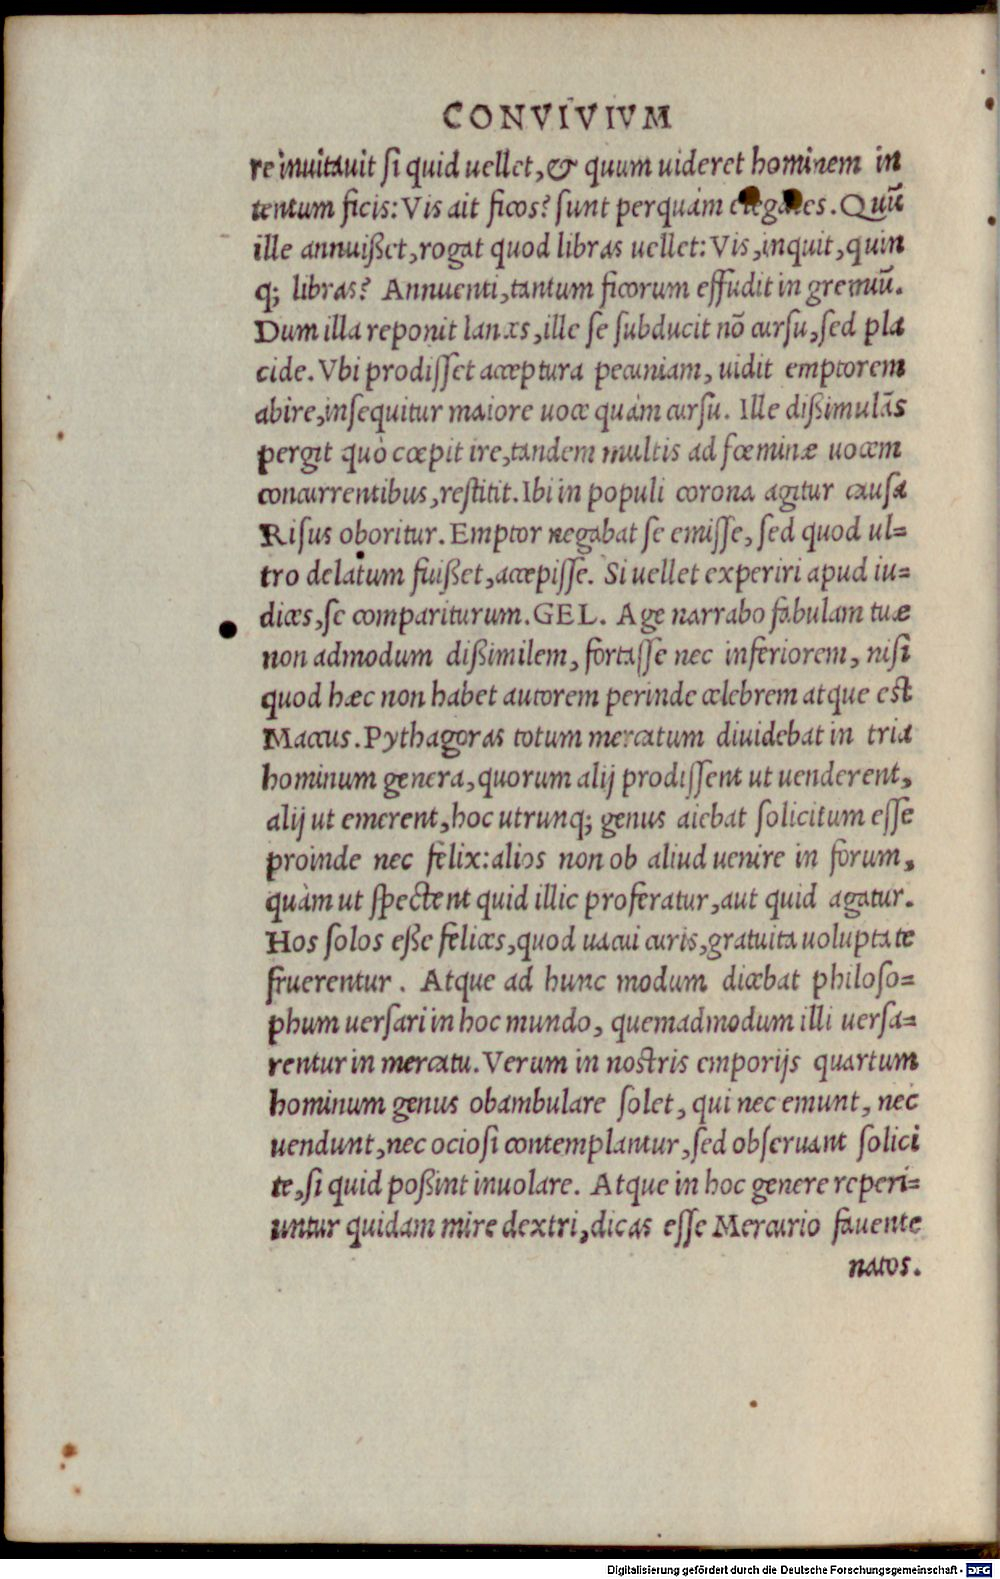 CONVIVIVM
re inuitauit si quid uellet, & quum uideret hominem in
tentum ficis: Vis ait ficos? sunt perquàm elegātes. Quū
ille annuißet, rogat quod libras uellet: Vis, inquit, quin
q; libras? Annuenti, tantum ficorum effudit in gremiū.
Dum illa reponit lances, ille se subducit nō cursu, sed pla
cide. Vbi prodisset acceptura pecuniam, uidit emptorem
abire, insequitur maiore uoce quàm cursu. Ille dißimulās
pergit quò cœpit ire, tandem multis ad fœminæ uocem
concurrentibus, restitit. Ibi in populi corona agitur causa
Risus oboritur. Emptor negabat se emisse, sed quod ul=
tro delatum fuißet, accepisse. Si uellet experiri apud iu=
dices, se compariturum. GEL. Age narrabo fabulam tuæ
non admodum dißimilem, fortasse nec inferiorem, nisi
quod hæc non habet autorem perinde celebrem atque est
Maccus. Pythagoras totum mercatum diuidebat in tria
hominum genera, quorum alij prodissent ut uenderent,
alij ut emerent, hoc utrunq; genus aiebat solicitum esse
proinde nec felix: alios non ob aliud uenire in forum,
quàm ut spectent quid illic proferatur, aut quid agatur.
Hos solos eße felices, quod uacui curis, gratuita uoluptate
fruerentur. Atque ad hunc modum dicebat philoso=
phum uersari in hoc mundo, quemadmodum illi uersa=
rentur in mercatu. Verum in nostris emporijs quartum
hominum genus obambulare solet, qui nec emunt, nec
uendunt, nec ociosi contemplantur, sed obseruant solici
te, si quid poßint inuolare. Atque in hoc genere reperi=
untur quidam mire dextri, dicas esse Mercurio fauente
natos.
Digitalisierung gefördert durch die Deutsche Forschungsgemeinschaft - DFG